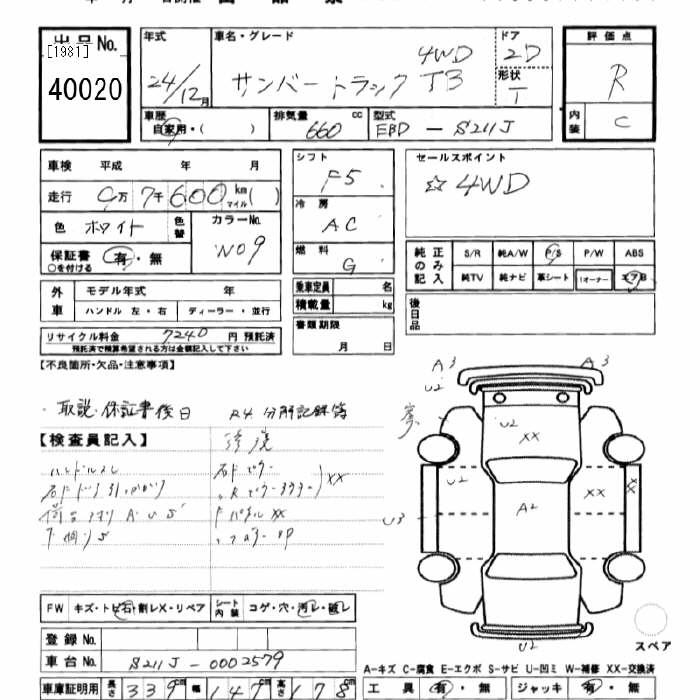 出品No.
[1981]
40020
年式
24/12月
車名・グレード
サンバートラック
4WD
TB
ドア
2D
形状
T
評価点
R
内装
C
車歴
自家用・( )
排気量
660
cc
型式
EBD - S211J
車検 平成 年 月
走行
9万 7千 600 km マイル( )
色
ホワイト
色替
カラーNo.
W09
保証書
○を付ける
有・無
シフト
F5
冷房
AC
燃料
G
セールスポイント
☆4WD
純正のみ記入
S/R
純A/W
P/S
P/W
ABS
純TV
純ナビ
革シート
1オーナー
エアB
外車
モデル年式 年
ハンドル 左・右
ディーラー・並行
乗車定員 名
積載量 kg
後日品
リサイクル料金 7240 円 預託済
預託済で精算希望される方は金額記入して下さい
書類期限
月 日
【不良箇所・欠品・注意事項】
・取説・保証書後日
R4 分解記録簿
【検査員記入】
ハンドルスレ
下廻りS
XX
A3
A3
U2
U2
XX
U2
XX
XX
A2
U3
U2
スペア
FW
キズ・トビ石・割レX・リペア
シート内装
コゲ・穴・汚レ・破レ
登録No.
車台No.
S211J-0002579
車庫証明用
長さ 339cm
幅 147cm
高さ 178cm
A-キズ C-腐食 E-エクボ S-サビ U-凹ミ W-補修 XX-交換済
工具 有・無
ジャッキ 有・無